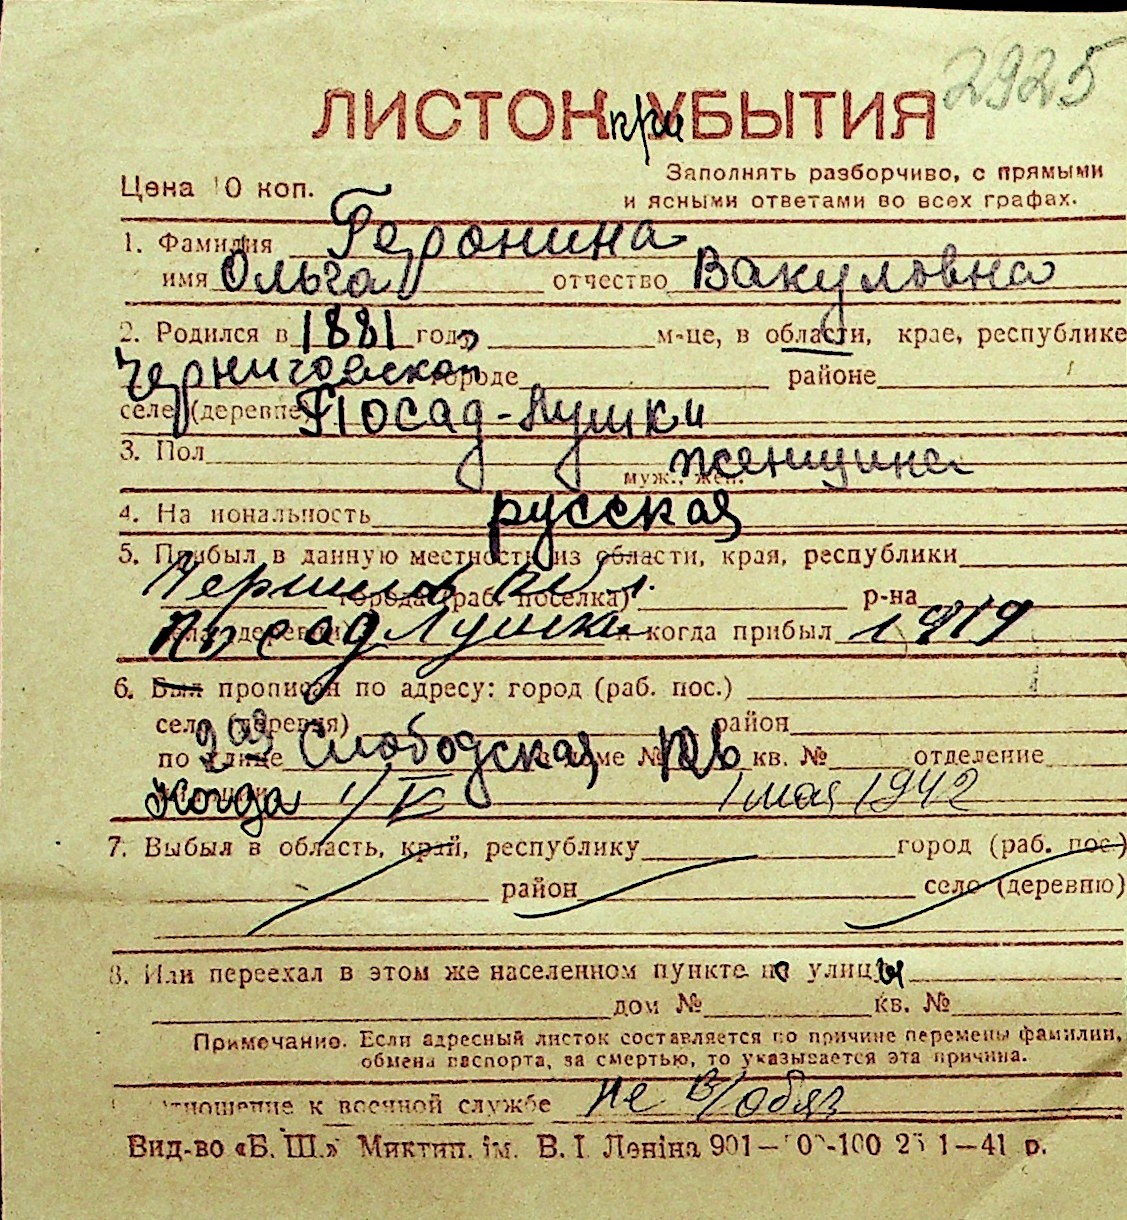 2925
ЛИСТОК при УБЫТИЯ
Цена 10 коп.
Заполнять разборчиво, с прямыми
и ясными ответами во всех графах.
1. Фамилия Геронина
имя Ольга отчество Вакуловна
2. Родился в 1881 году м-це, в области, крае, республике
Черниговской городе районе
селе (деревне) Посад-Лушки
3. Пол женщина
муж., жен.
4. Национальность русская
5. Прибыл в данную местность из области, края, республики
обл.
города (раб. поселка) р-на
села (деревни) Посад Лушки и когда прибыл 1919
6. Был прописан по адресу: город (раб. пос.)
село (деревня) район
по улице 2ая Слободская доме № кв. № отделение
Когда 1/V 1 мая 1942
7. Выбыл в область, край, республику город (раб. пос.)
район село (деревню)
8. Или переехал в этом же населенном пункте по улицы
дом № кв. №
Примечание. Если адресный листок составляется по причине перемены фамилии,
обмена паспорта, за смертью, то указывается эта причина.
отношение к военной службе не в/обяз
Вид-во «Б. Ш.» Миктип. ім. В. І Леніна 901— 1—41 р.